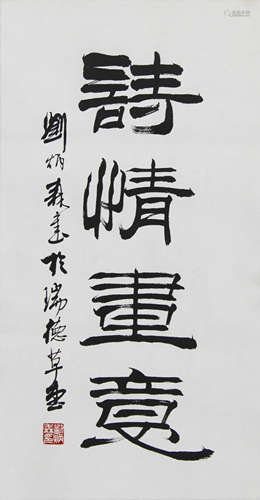 詩情畫意
劉炳森書於瑞德草堂